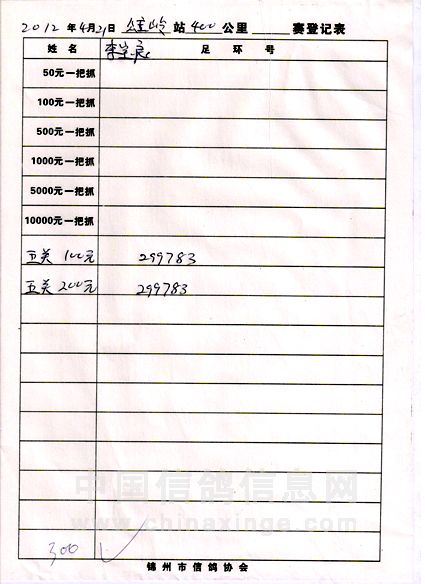 2012 年 4 月 21 日 站 400 公里 赛登记表
姓 名 李 足 环 号
50元一把抓
100元一把抓
500元一把抓
1000元一把抓
5000元一把抓
10000元一把抓
五关 100元 299783
五关 200元 299783
中国信鸽信息网
www.chinaxinge.com
300
锦州市信鸽协会